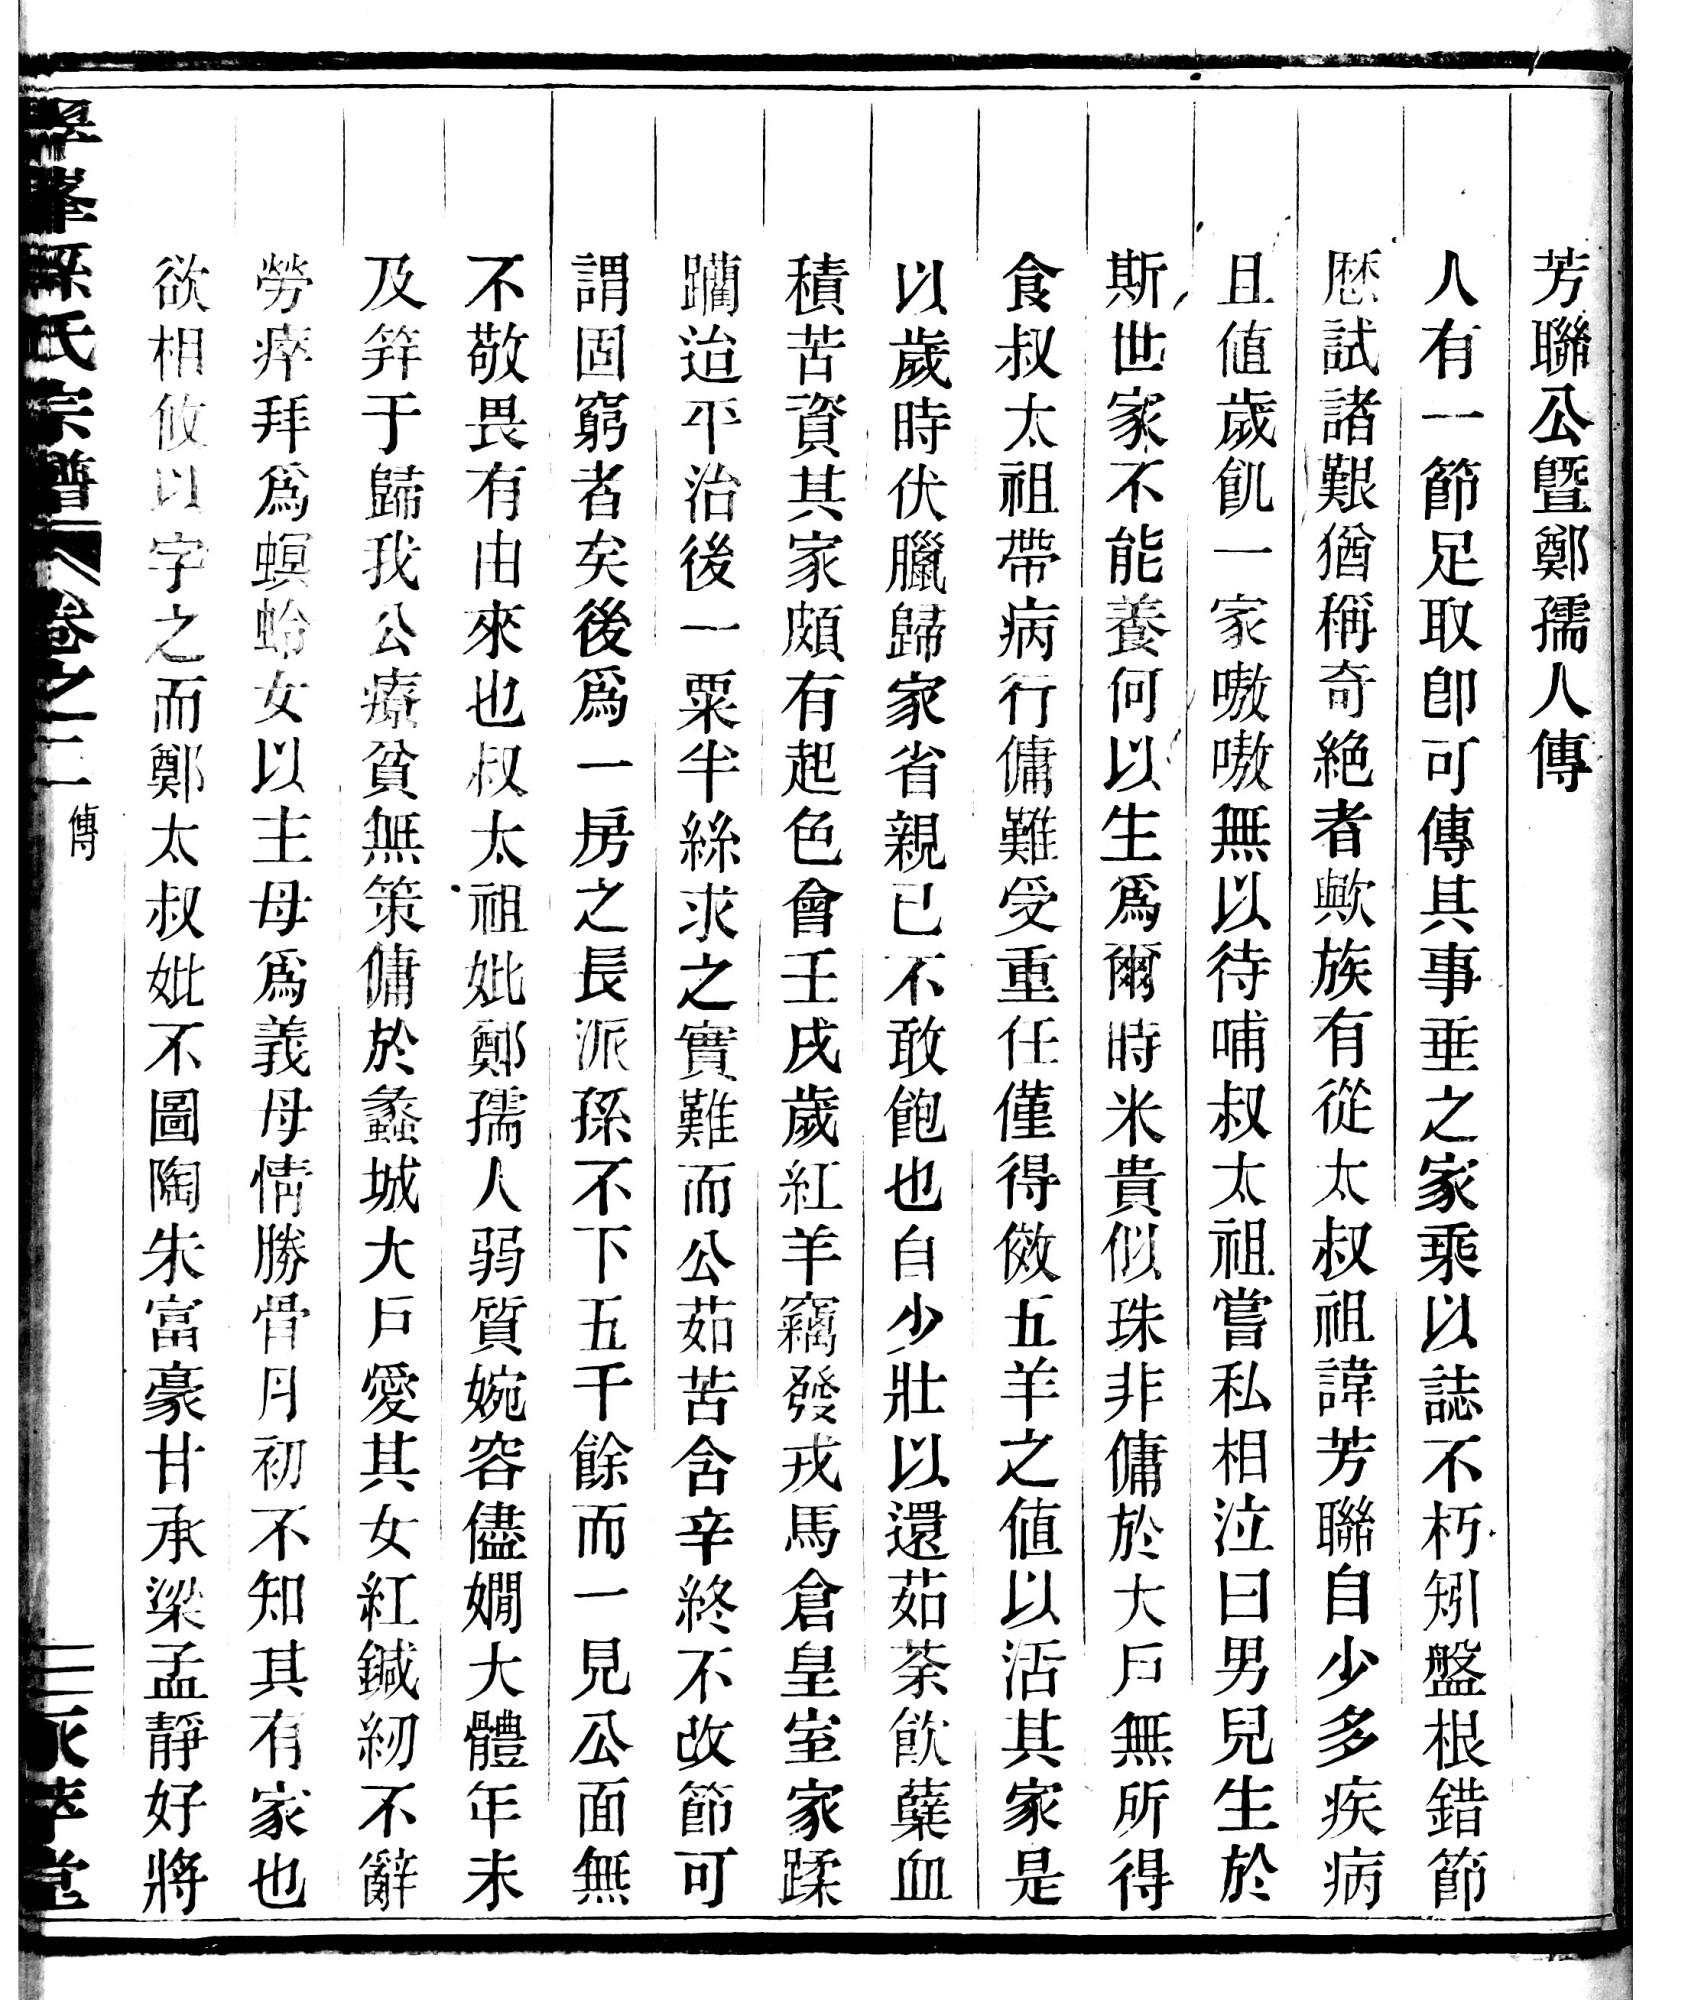 芳聯公暨鄭孺人傳
人有一節足取卽可傳其事垂之家乘以誌不朽矧盤根錯節
歷試諸艱猶稱奇絶者歟族有從太叔祖諱芳聯自少多疾病
且值歲飢一家嗷嗷無以待哺叔太祖嘗私相泣曰男兒生於
斯世家不能養何以生爲爾時米貴似珠非傭於大戶無所得
食叔太祖帶病行傭難受重任僅得傚五羊之値以活其家是
以歲時伏臘歸家省親已不敢飽也自少壯以還茹荼飮蘖血
積苦資其家頗有起色會壬戌歲紅羊竊發戎馬倉皇室家蹂
躪迨平治後一粟半絲求之實難而公茹苦含辛終不改節可
謂固窮者矣後爲一房之長派孫不下五千餘而一見公面無
不敬畏有由來也叔太祖妣鄭孺人弱質婉容儘嫺大體年未
及笄于歸我公療貧無策傭於蠡城大戶愛其女紅鍼紉不辭
勞瘁拜爲螟蛉女以主母爲義母情勝骨月初不知其有家也
欲相攸以字之而鄭太叔妣不圖陶朱富豪甘承梁孟靜好將
峯孫氏宗譜 卷之二 傳 二 永萃堂